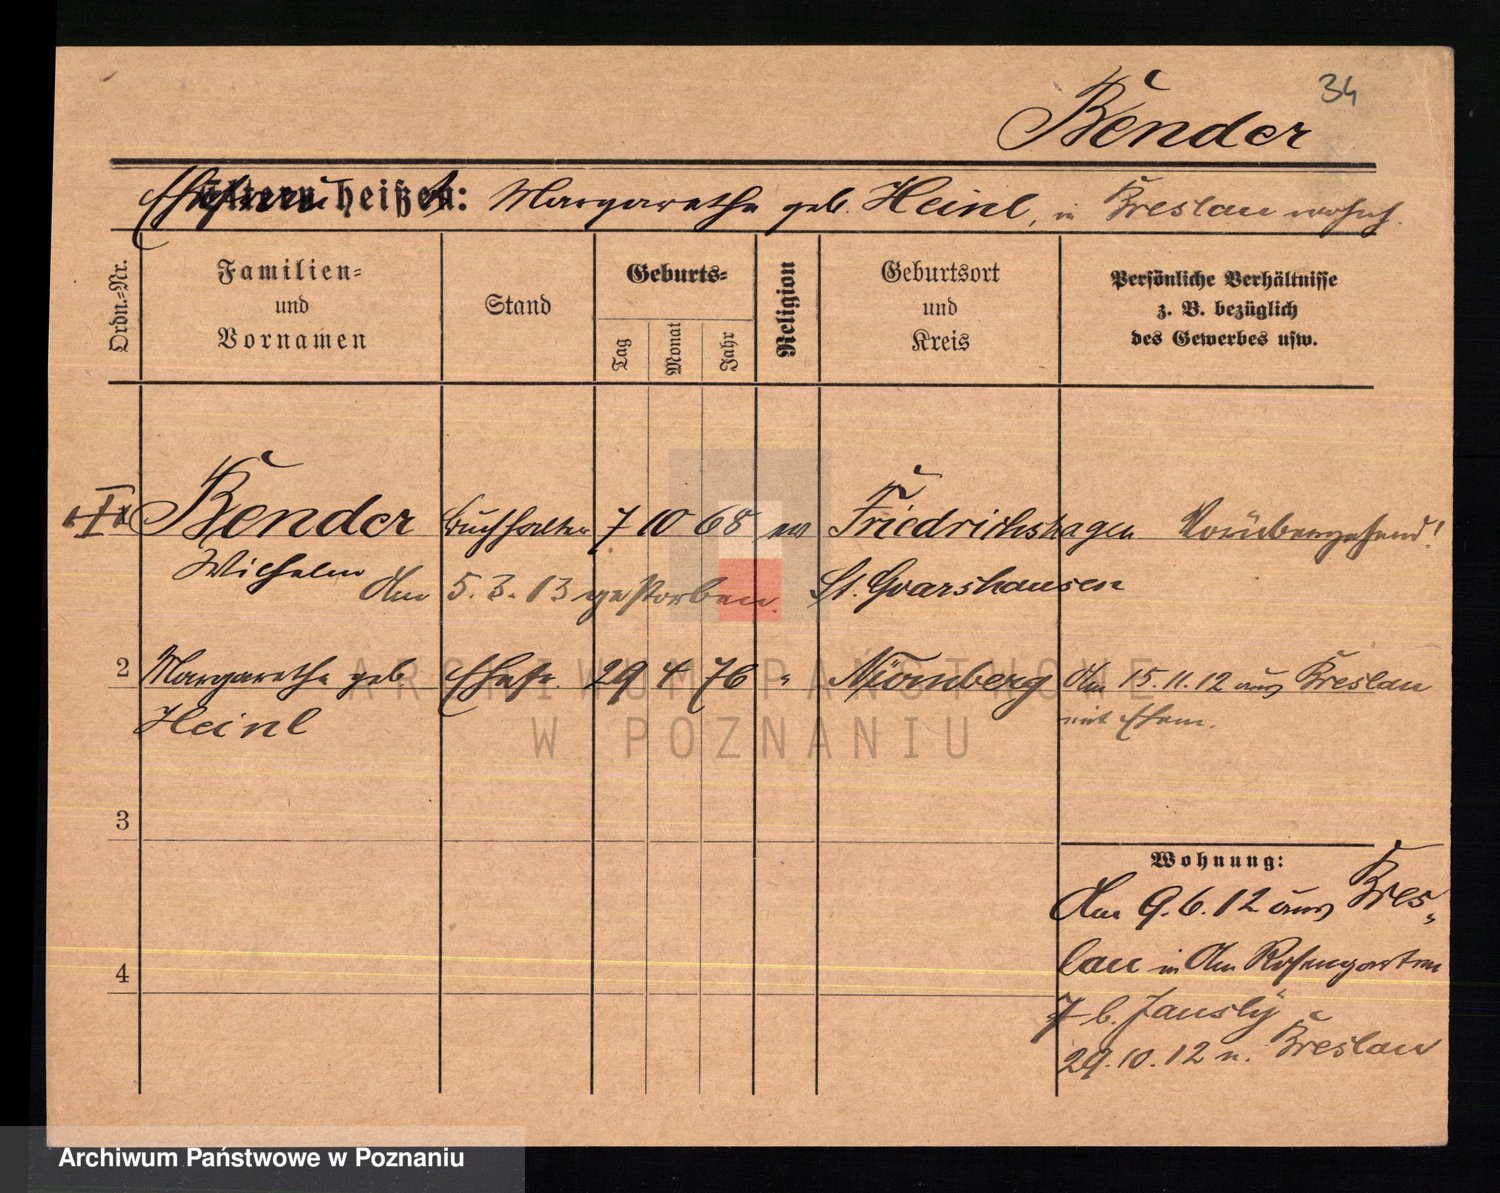 34
Bender
Eltern heißen: Margarethe geb. Heinl, in Breslau wohnh.
Ordn.-Nr.
Familien-
und
Vornamen
Stand
Geburts-
Tag
Monat
Jahr
Religion
Geburtsort
und
Kreis
Persönliche Verhältnisse
z. B. bezüglich
des Gewerbes usw.
1 Bender Buchhalter 7 10 68 ev Friedrichshagen Vorübergehend!
Wilhelm
Am 5.3.13 gestorben. St. Goarshausen
2 Margarethe geb Ehefr. 29 4 76 " Nürnberg Am 15.11.12 aus Breslau
Heinl
mit Ehem.
3
4
Wohnung:
Am 9.6.12 aus Bres-
lau in Am Rosengarten
7 b.
29.10.12 n. Breslau
ARCHIWUM PAŃSTWOWE
W POZNANIU
Archiwum Państwowe w Poznaniu